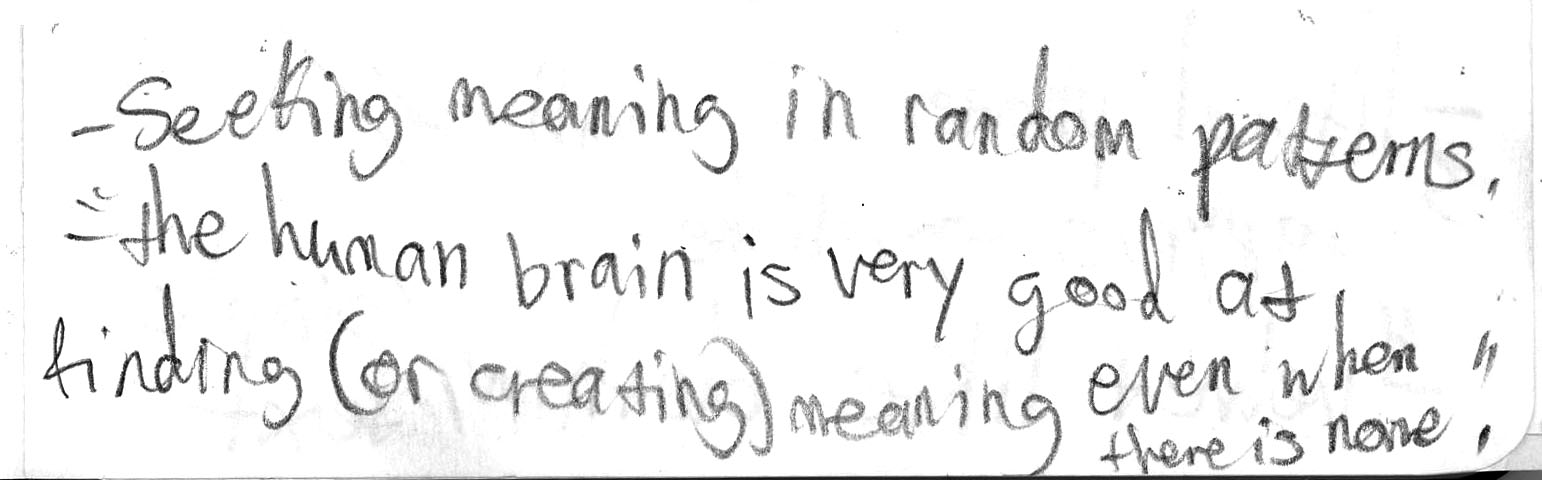 - Seeking meaning in random patterns.
- "the human brain is very good at
finding (or creating) meaning even when
there is none".